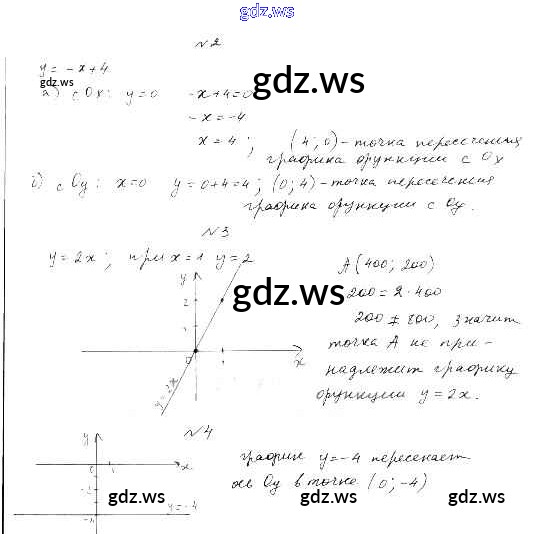 gdz.ws
№2
y = -x+4
gdz.ws
gdz.ws
а) с Ox: y=0 -x+4=0
-x=-4
x=4; (4; 0) - точка пересечения
графика функции с Ox
б) с Oy: x=0 y=0+4=4; (0; 4) - точка пересечения
графика функции с Oy.
№3
y=2x; при x=1 y=2
A(400; 200)
200=2·400
200≠800, значит
точка A не при-
надлежит графику
функции y=2x.
gdz.ws
y
2
1
0
1
x
y=2x
№4
график y=-4 пересекает
ось Oy в точке (0; -4)
y
0
1
x
y=-4
-4
gdz.ws
gdz.ws
gdz.ws